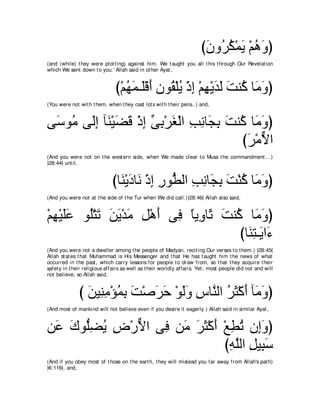 (وَهُمْ يَمْكُرُونَ)
(and (while) they were plotting) against him. We taught you all this through Our Revelation
which We sent down to you.' Allah said in other Ayat,
(وَمَا كُنتَ لَدَيْهِمْ إِذْ يُلْقُون أَقْلَـمَهُمْ)
(You were not with them, when they cast lots with their pens..) and,
(وَمَا كُنتَ بِجَانِبِ الْغَرْبِىِّ إِذْ قَضَيْنَآ إِلَى مُوسَى
الاٌّمْرَ)
(And you were not on the western side, when We made clear to Musa the commandment...)
)28:44( until,
(وَمَا كُنْتَ بِجَانِبِ الطُّورِ إِذْ نَادَيْنَا)
(And you were not at the side of the Tur when We did call.))28:46( Allah also said,
(وَمَا كُنتَ ثَاوِياً فِى أَهْلِ مَدْيَنَ تَتْلُو عَلَيْهِمْ
ءَايَـتِنَا)
(And you were not a dweller among the people of Madyan, reciting Our verses to them.) )28:45(
Allah states that Muhammad is His Messenger and that He has taught him the news of what
occurred in the past, which carry lessons for people to draw from, so that they acquire their
safety in their religious affairs as well as their worldly affairs. Yet, most people did not and will
not believe, so Allah said,
(وَمَآ أَكْثَرُ النَّاسِ وَلَوْ حَرَصْتَ بِمُؤْمِنِينَ )
(And most of mankind will not believe even if you desire it eagerly.) Allah said in similar Ayat,
(وَإِن تُطِعْ أَكْثَرَ مَن فِى الاٌّرْضِ يُضِلُّوكَ عَن
سَبِيلِ اللَّهِ)
(And if you obey most of those on the earth, they will mislead you far away from Allah's path)
)6:116(, and,